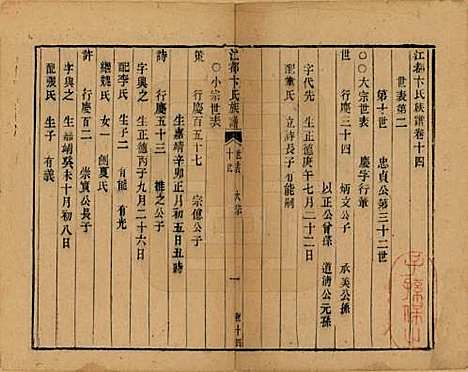 江都卞氏族譜卷十四
世表第二
第十世　忠貞公第三十二世
〇〇大宗世表　慶字行輩
世　行慶三十四　炳文公子　承美公孫
以正公曾孫　道清公元孫
字代先　生正德庚午七月二十二日
配董氏　立詩長子有能嗣
江都卞氏族譜　世表　大宗　十世　一　卷十四
〇小宗世表
策　行慶五十七　宗傳公子
生嘉靖辛卯正月初五日丑時
詩　行慶五十三　權之公子
字興之　生正德丙子九月二十六日
配李氏　生子二　有能　有光
繼魏氏　女一　適夏氏
許　行慶百二　崇實公長子
字與之　生嘉靖癸未十月初八日
配張氏　生子　有義